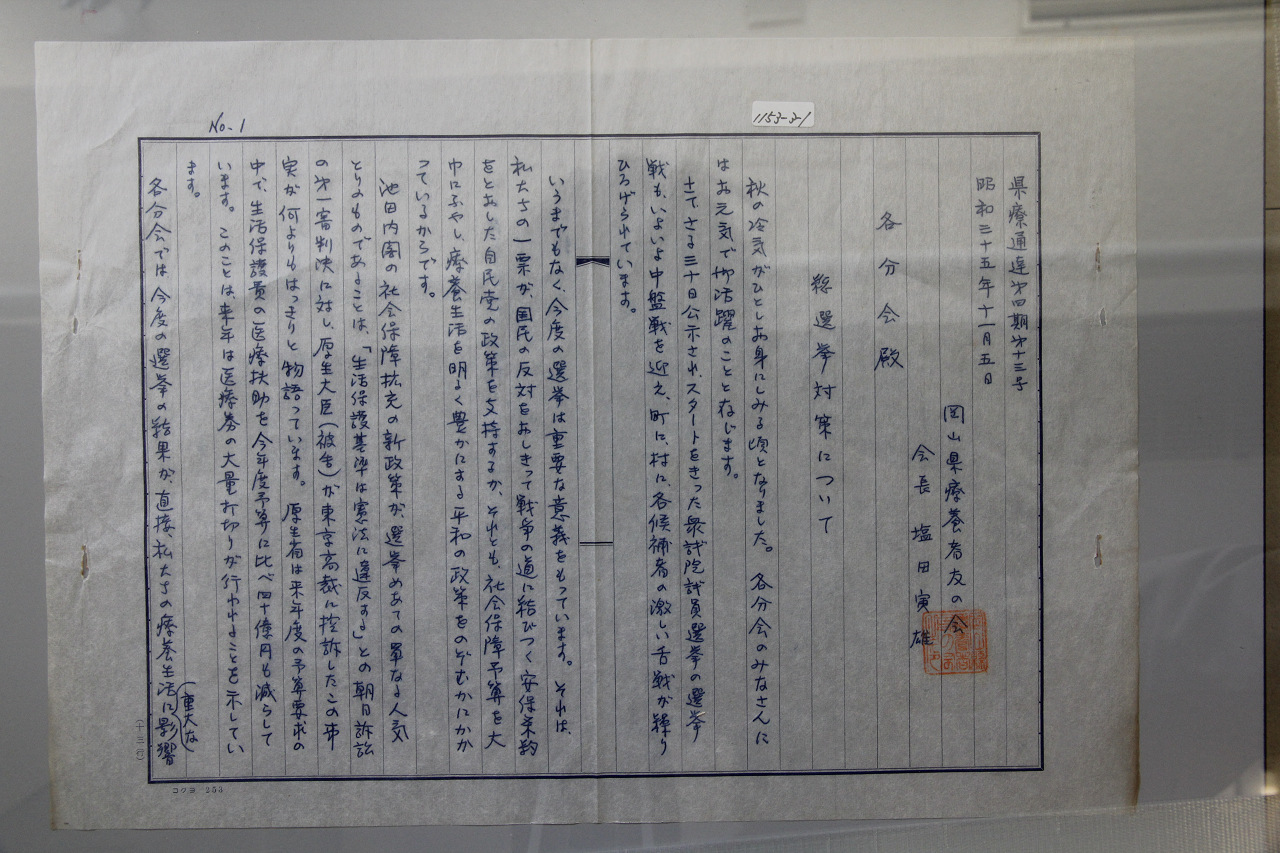 1153-2-1
No-1
県療通達第四期第十三号
昭和三十五年十一月五日
岡山県療養者友の会
会長 塩田寅雄
各分会殿
総選挙対策について
秋の冷気がひとしお身にしみる頃となりました。各分会のみなさんに
はお元気で御活躍のことと存じます。
さて、さる三十日公示され、スタートをきった衆議院議員選挙の選挙
戦も、いよいよ中盤戦を迎え、町に、村に、各候補者の激しい舌戦が繰り
ひろげられています。
いうまでもなく、今度の選挙は重要な意義をもっています。それは、
私たちの一票が、国民の反対をおしきって戦争の道に結びつく安保条約
をとおした自民党の政策を支持するか、それとも、社会保障予算を大
巾にふやし、療養生活を明るく豊かにする平和の政策をのぞむかにかか
っているからです。
池田内閣の社会保障拡充の新政策が、選挙めあての単なる人気
とりのものであることは、「生活保護基準は憲法に違反する」との朝日訴訟
の第一審判決に対し、厚生大臣(被告)が東京高裁に控訴したこの事
実が何よりもはっきりと物語っています。厚生省は来年度の予算要求の
中で、生活保護費の医療扶助を今年度予算に比べ四十億円も減らして
います。このことは、来年は医療券の大量打切りが行われることを示してい
ます。
各分会では、今度の選挙の結果が、直接、私たちの療養生活に(重大な)影響
(十三行)
コクヨ 253